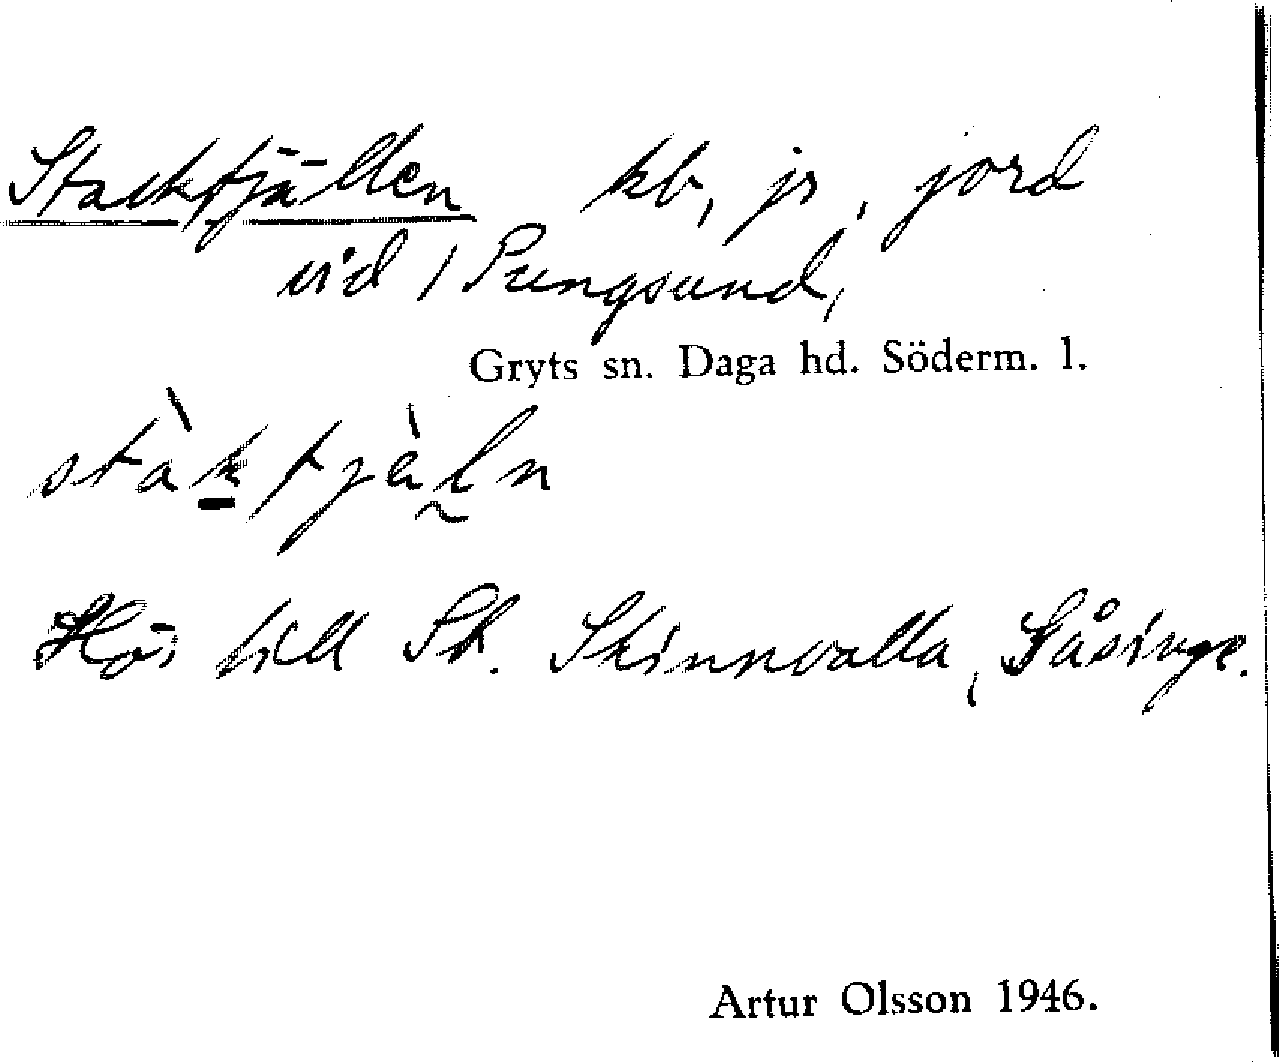 Stackfjällen hb, js, jord
vid / Pungsund,
Gryts sn. Daga hd. Söderm. l.
Hör till St. Skinnvalla, Gåsinge.
Artur Olsson 1946.